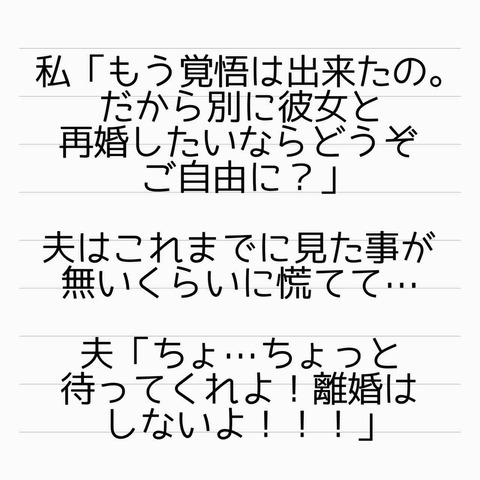 私「もう覚悟は出来たの。
だから別に彼女と
再婚したいならどうぞ
ご自由に？」
夫はこれまでに見た事が
無いくらいに慌てて…
夫「ちょ…ちょっと
待ってくれよ！離婚は
しないよ！！！」